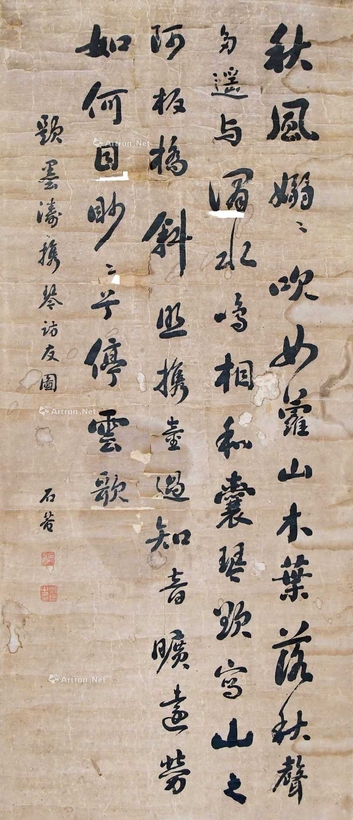 秋風嫋〻吹女蘿山木葉落秋聲
多遥与渭水鳴相和囊琴欲寫山之
阿板橋斜照携壺過知音曠遠勞
如何目眇〻兮停雲歌
題墨濤携琴訪友圖
石菴
Artron.Net
Artron.Net
Artron.Net
Artron.Net
Artron.Net